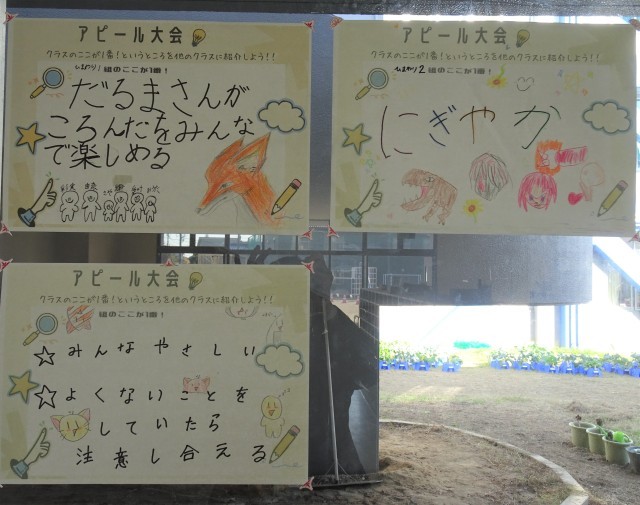 アピール大会
クラスのここが1番！というところを他のクラスに紹介しよう！！
ひまわり1 組のここが1番！
だるまさんが
ころんだをみんな
で楽しめる
アピール大会
クラスのここが1番！というところを他のクラスに紹介しよう！！
ひまわり2 組のここが1番！
にぎやか
アピール大会
クラスのここが1番！というところを他のクラスに紹介しよう！！
組のここが1番！
☆みんなやさしい
☆よくないことを
していたら
注意し合える